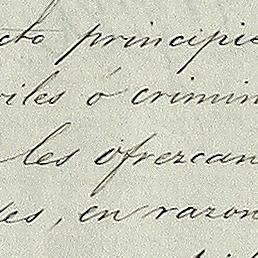 cto principie
viles ó crimin
les ofrezcan
es, en razon